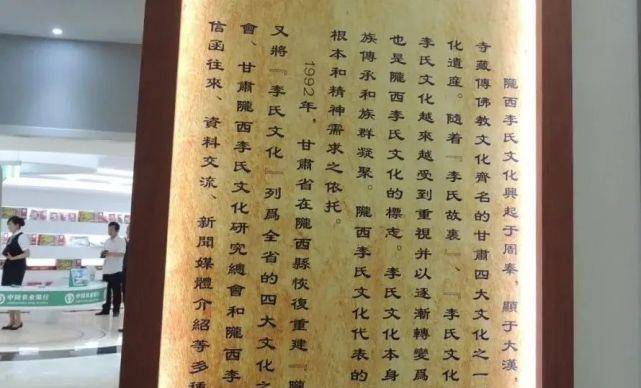 隴西李氏文化興起于周秦，顯于大漢
寺藏傳佛教文化齊名的甘肅四大文化之一
化遺産。隨着『李氏故裏』、『李氏文化
李氏文化越來越受到重視并以逐漸轉變爲
也是隴西李氏文化的標志。李氏文化本身
族傳承和族群凝聚。隴西李氏文化代表的
根本和精神需求之依托。
1992年，甘肅省在隴西縣恢復重建『隴
又將『李氏文化』列爲全省的四大文化之
會、甘肅隴西李氏文化研究總會和隴西李
信函往來、資料交流、新聞媒體介紹等多種
中国农业银行